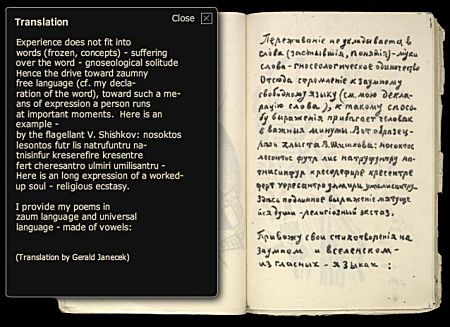 Translation
Close
Experience does not fit into
words (frozen, concepts) - suffering
over the word - gnoseological solitude
Hence the drive toward zaumny
free language (cf. my decla-
ration of the word), toward such a me-
ans of expression a person runs
at important moments. Here is an
example -
by the flagellant V. Shishkov: nosoktos
lesontos futr lis natrufuntru na-
tnisinfur kreserefire kresentre
fert cheresantro ulmiri umilisantru -
Here is an long expression of a worked-
up soul - religious ecstasy.
I provide my poems in
zaum language and universal
language - made of vowels:
(Translation by Gerald Janecek)
Переживаніе не укладывается в
слова (застывшія, понятія) - муки
слова - гносеологическое одиночество
Отсюда стремленіе к заумному
свободному языку (см. мою декла-
рацію слова), к такому спосо-
бу выраженія прибегает человек
в важныя минуты. Вот образец-
хлыста В. Шишкова: носоктос
лесонтос футр лис натруфунтру на-
тнисинфур кресерефире кресентре
ферт чересантро улмири умилисантру-
Здесь подлинное выраженіе мятуще
йся души - религіозный экстаз.
Привожу свои стихотворенія на
заумном и вселенском -
из гласных - языках :